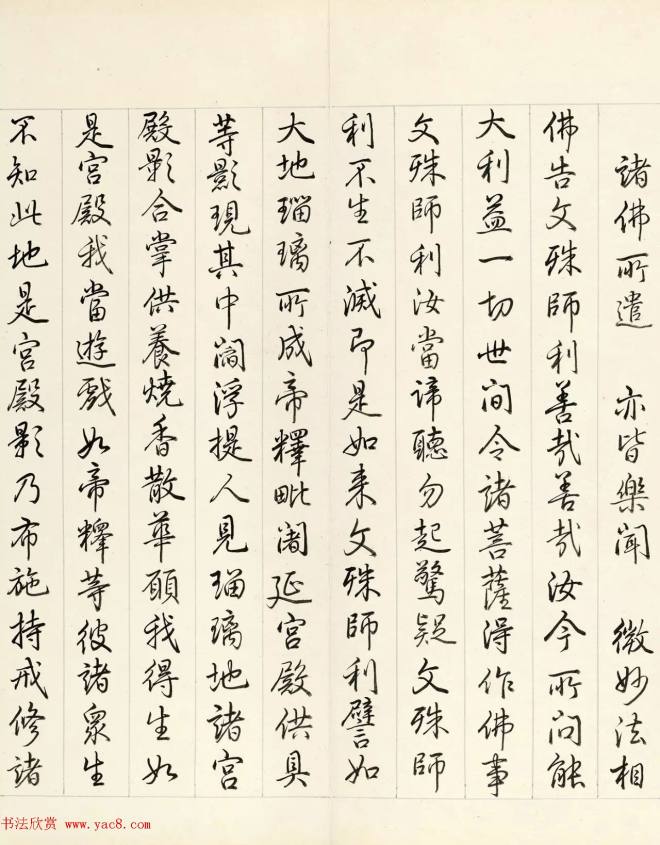 諸佛所遣　亦皆樂聞　微妙法相
佛告文殊師利善哉善哉汝今所问能
大利益一切世间令諸菩薩得作佛事
文殊師利汝當諦聽勿起驚疑文殊師
利不生不滅即是如来文殊師利譬如
大地瑠璃所成帝釋毗闍延宫殿供具
等影現其中閻浮提人見瑠璃地諸宫
殿影合掌供養燒香散華願我得生如
是宫殿我當遊戲如帝釋等彼諸衆生
不知此地是宫殿影乃布施持戒修諸
书法欣赏 www.yac8.com